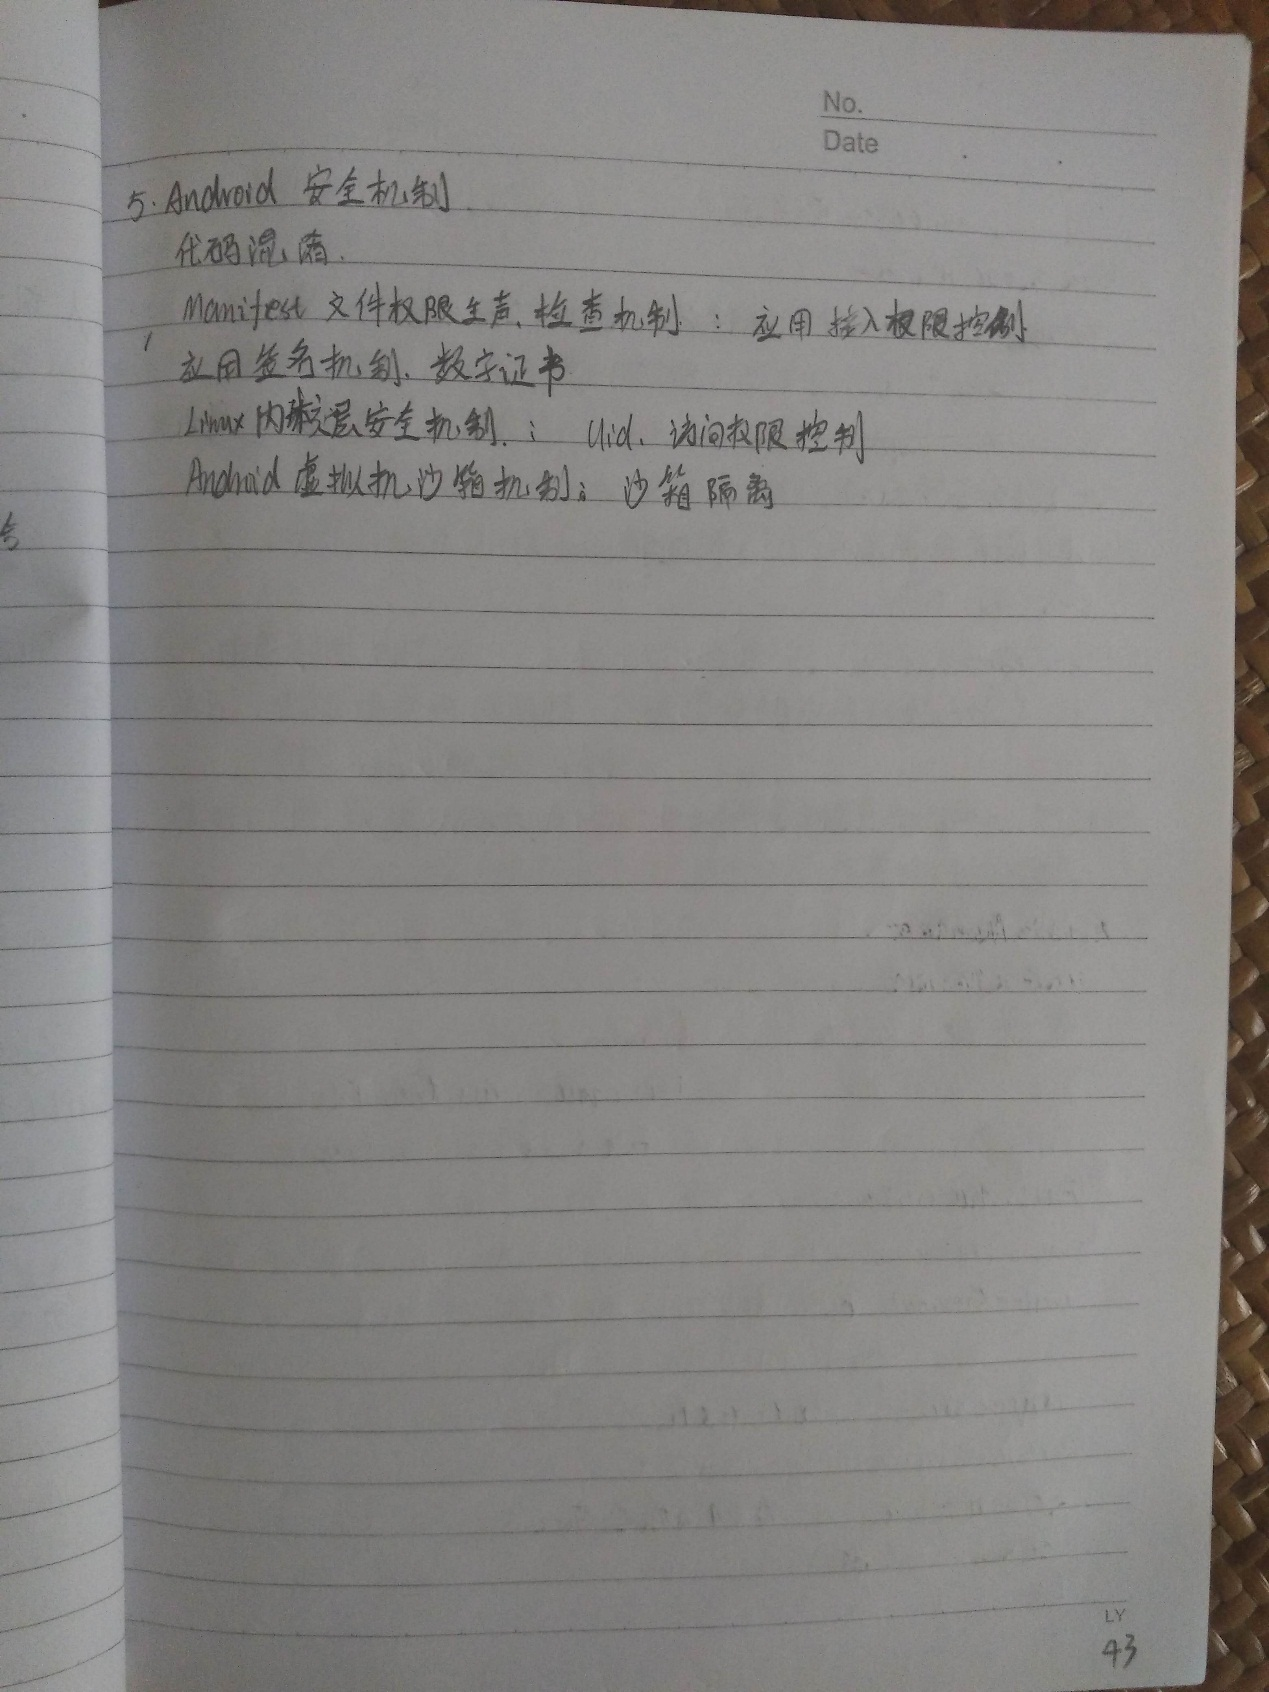 No.
Date
5. Android 安全机制
代码混淆.
Manifest 文件权限生声、检查机制 : 应用接入权限控制
应用签名机制. 数字证书
Linux 内核层安全机制. : Uid、访问权限控制
Android 虚拟机沙箱机制: 沙箱隔离
LY
43